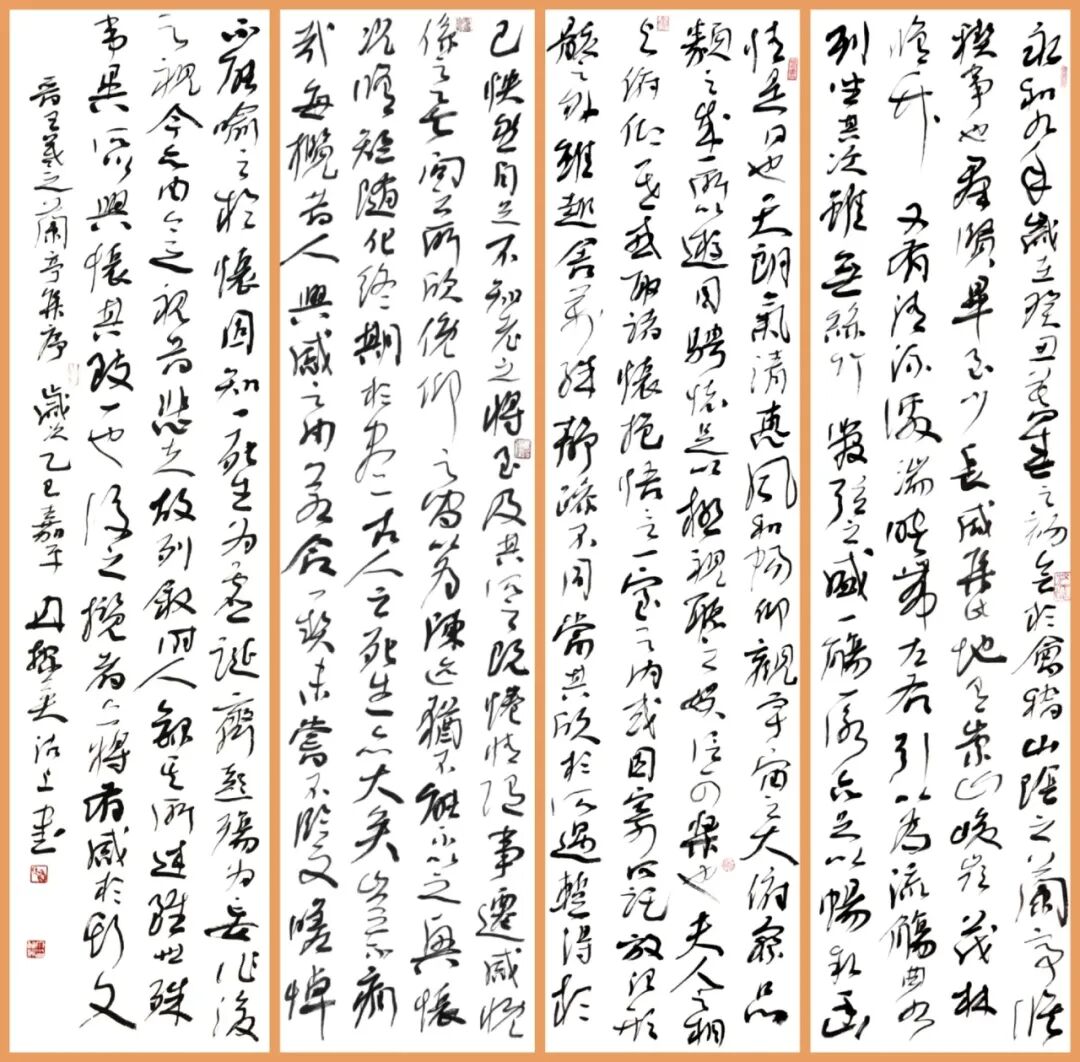 永和九年歲在癸丑暮春之初會於會稽山陰之蘭亭脩
禊事也群賢畢至少長咸集此地有崇山峻嶺茂林
脩竹又有清流激湍映帶左右引以為流觴曲水
列坐其次雖無絲竹管弦之盛一觴一詠亦足以暢敘幽
情是日也天朗氣清惠風和暢仰觀宇宙之大俯察品
類之盛所以遊目騁懷足以極視聽之娛信可樂也夫人之相
與俯仰一世或取諸懷抱悟言一室之內或因寄所託放浪形
骸之外雖趣舍萬殊靜躁不同當其欣於所遇暫得於
己怏然自足不知老之將至及其所之既惓情隨事遷感慨
係之矣向之所欣俛仰之間以為陳迹猶不能不以之興懷
況脩短隨化終期於盡古人云死生亦大矣豈不痛
哉每攬昔人興感之由若合一契未嘗不臨文嗟悼
不能喻之於懷固知一死生為虛誕齊彭殤為妄作後
之視今亦由今之視昔悲夫故列敘時人錄其所述雖世殊
事異所以興懷其致一也後之攬者亦將有感於斯文
晉王羲之蘭亭集序 歲次乙巳嘉平 沽上書